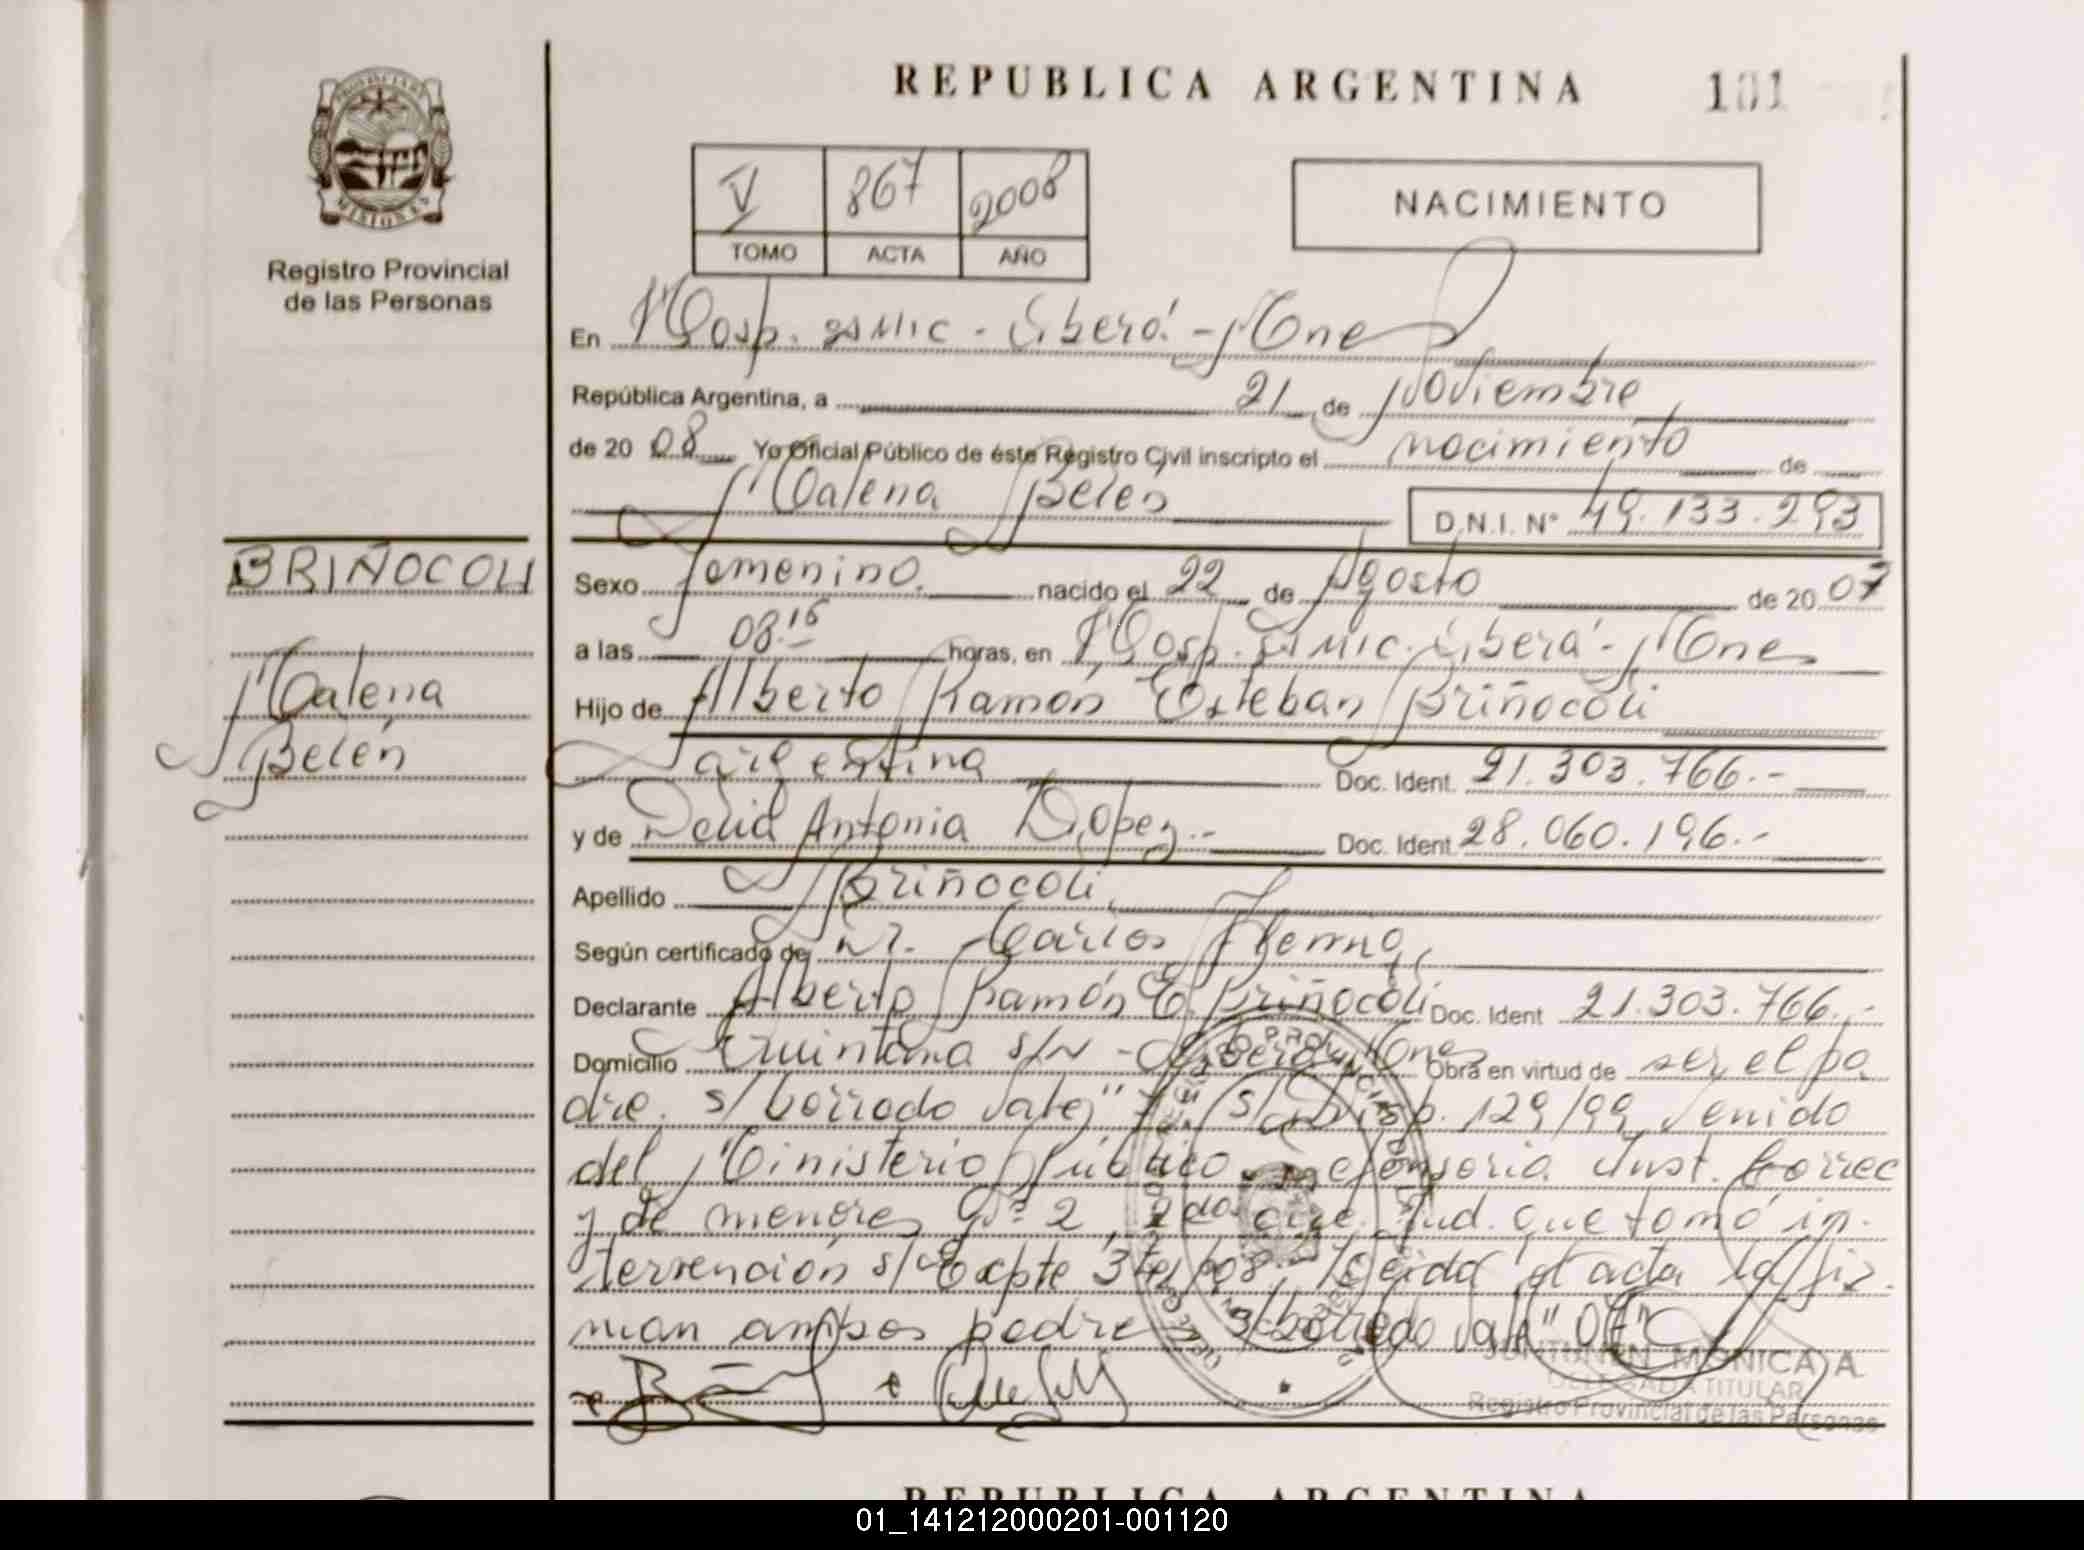 REPUBLICA ARGENTINA
101
PROVINCIA DE MISIONES
Registro Provincial
de las Personas
V 867 2008
TOMO ACTA AÑO
NACIMIENTO
En Hosp. SAMIC - Eiberá - Mnes
República Argentina, a 21 de Noviembre
de 20 08 Yo Oficial Público de éste Registro Civil inscripto el nacimiento de
Malena Belén D.N.I. N° 49.133.293
BRIÑOCOLI
Malena
Belén
Sexo femenino. nacido el 22 de Agosto de 20 07
a las 08.15 horas, en Hosp. SAMIC. - Mnes
Hijo de Alberto Ramón Esteban Briñocoli
argentina Doc. Ident. 21.303.766.-
y de Delia Antonia López.- Doc. Ident. 28.060.196.-
Apellido Briñocoli
Según certificado de Dr. Carlos
Declarante Alberto Ramón E. Briñocoli Doc. Ident 21.303.766.-
Domicilio Quintana s/N - Mnes Obra en virtud de ser el pa
dre. s/borrado vale" 7" s/Disp. 129/99, venido
del Ministerio Público Defensoria Inst. Correc
y de menores Nº 2, 2da circ. Jud. que tomó in-
tervención s/Expte 08.- Leida el acta la fir-
man ambos padres s/borrado vale" 07"
MONICA A.
DELEGADA TITULAR
Registro Provincial de las Personas
REPUBLICA ARGENTINA
01_141212000201-001120